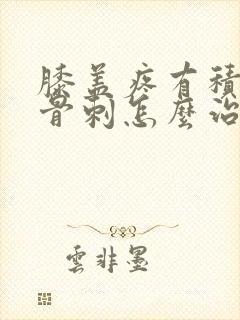 膝盖疼有積
骨刺怎麼治
雲非墨